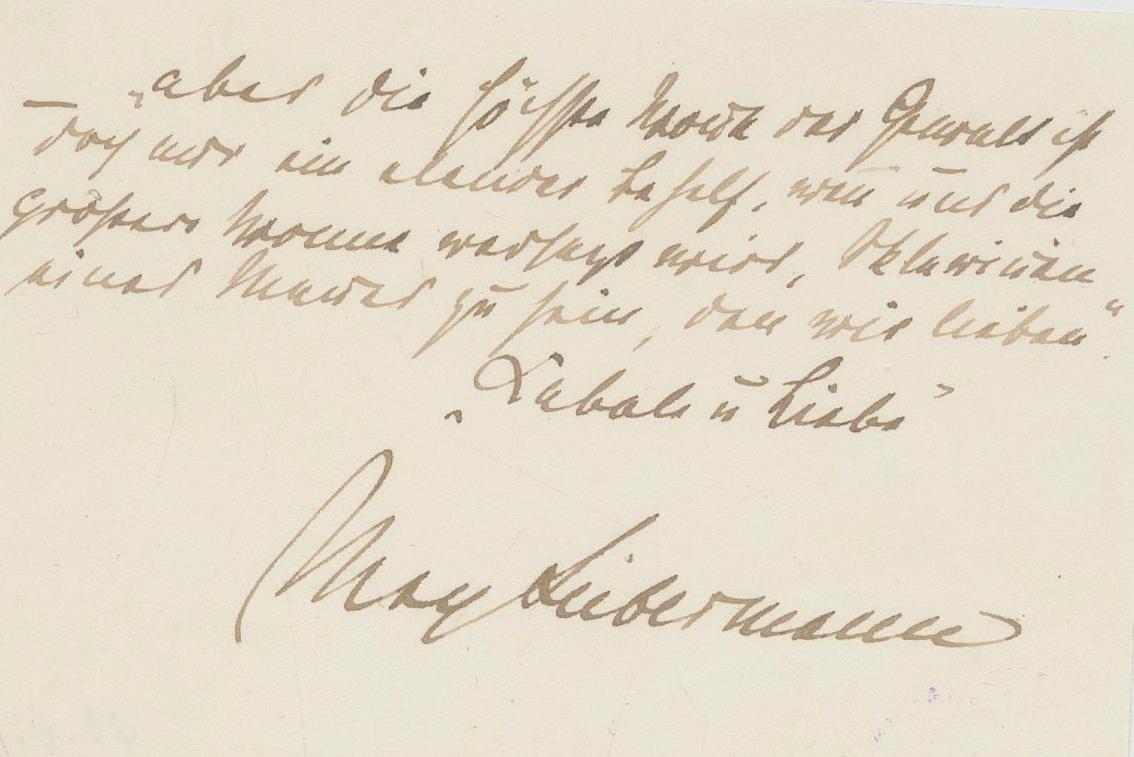 — „aber die höchste Wonne der Gewalt ist
doch nur ein elender Behelf, weñ uns die
größere Wonne versagt wird, Sklavinnen
eines Mannes zu sein, den wir lieben“.
„Kabale u Liebe“
Max Liebermann